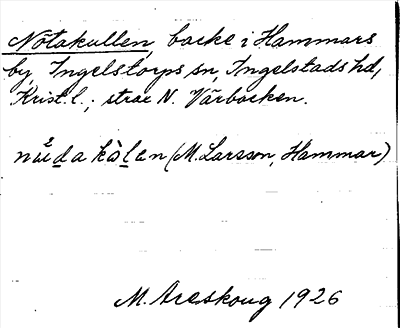 Notakullen, backe i Hammars
by, Ingelstorps sn, Ingelstads hd,
Krist. l.; strax N. Vårbacken.
(M. Larsson, Hammar)
M. Areskoug 1926